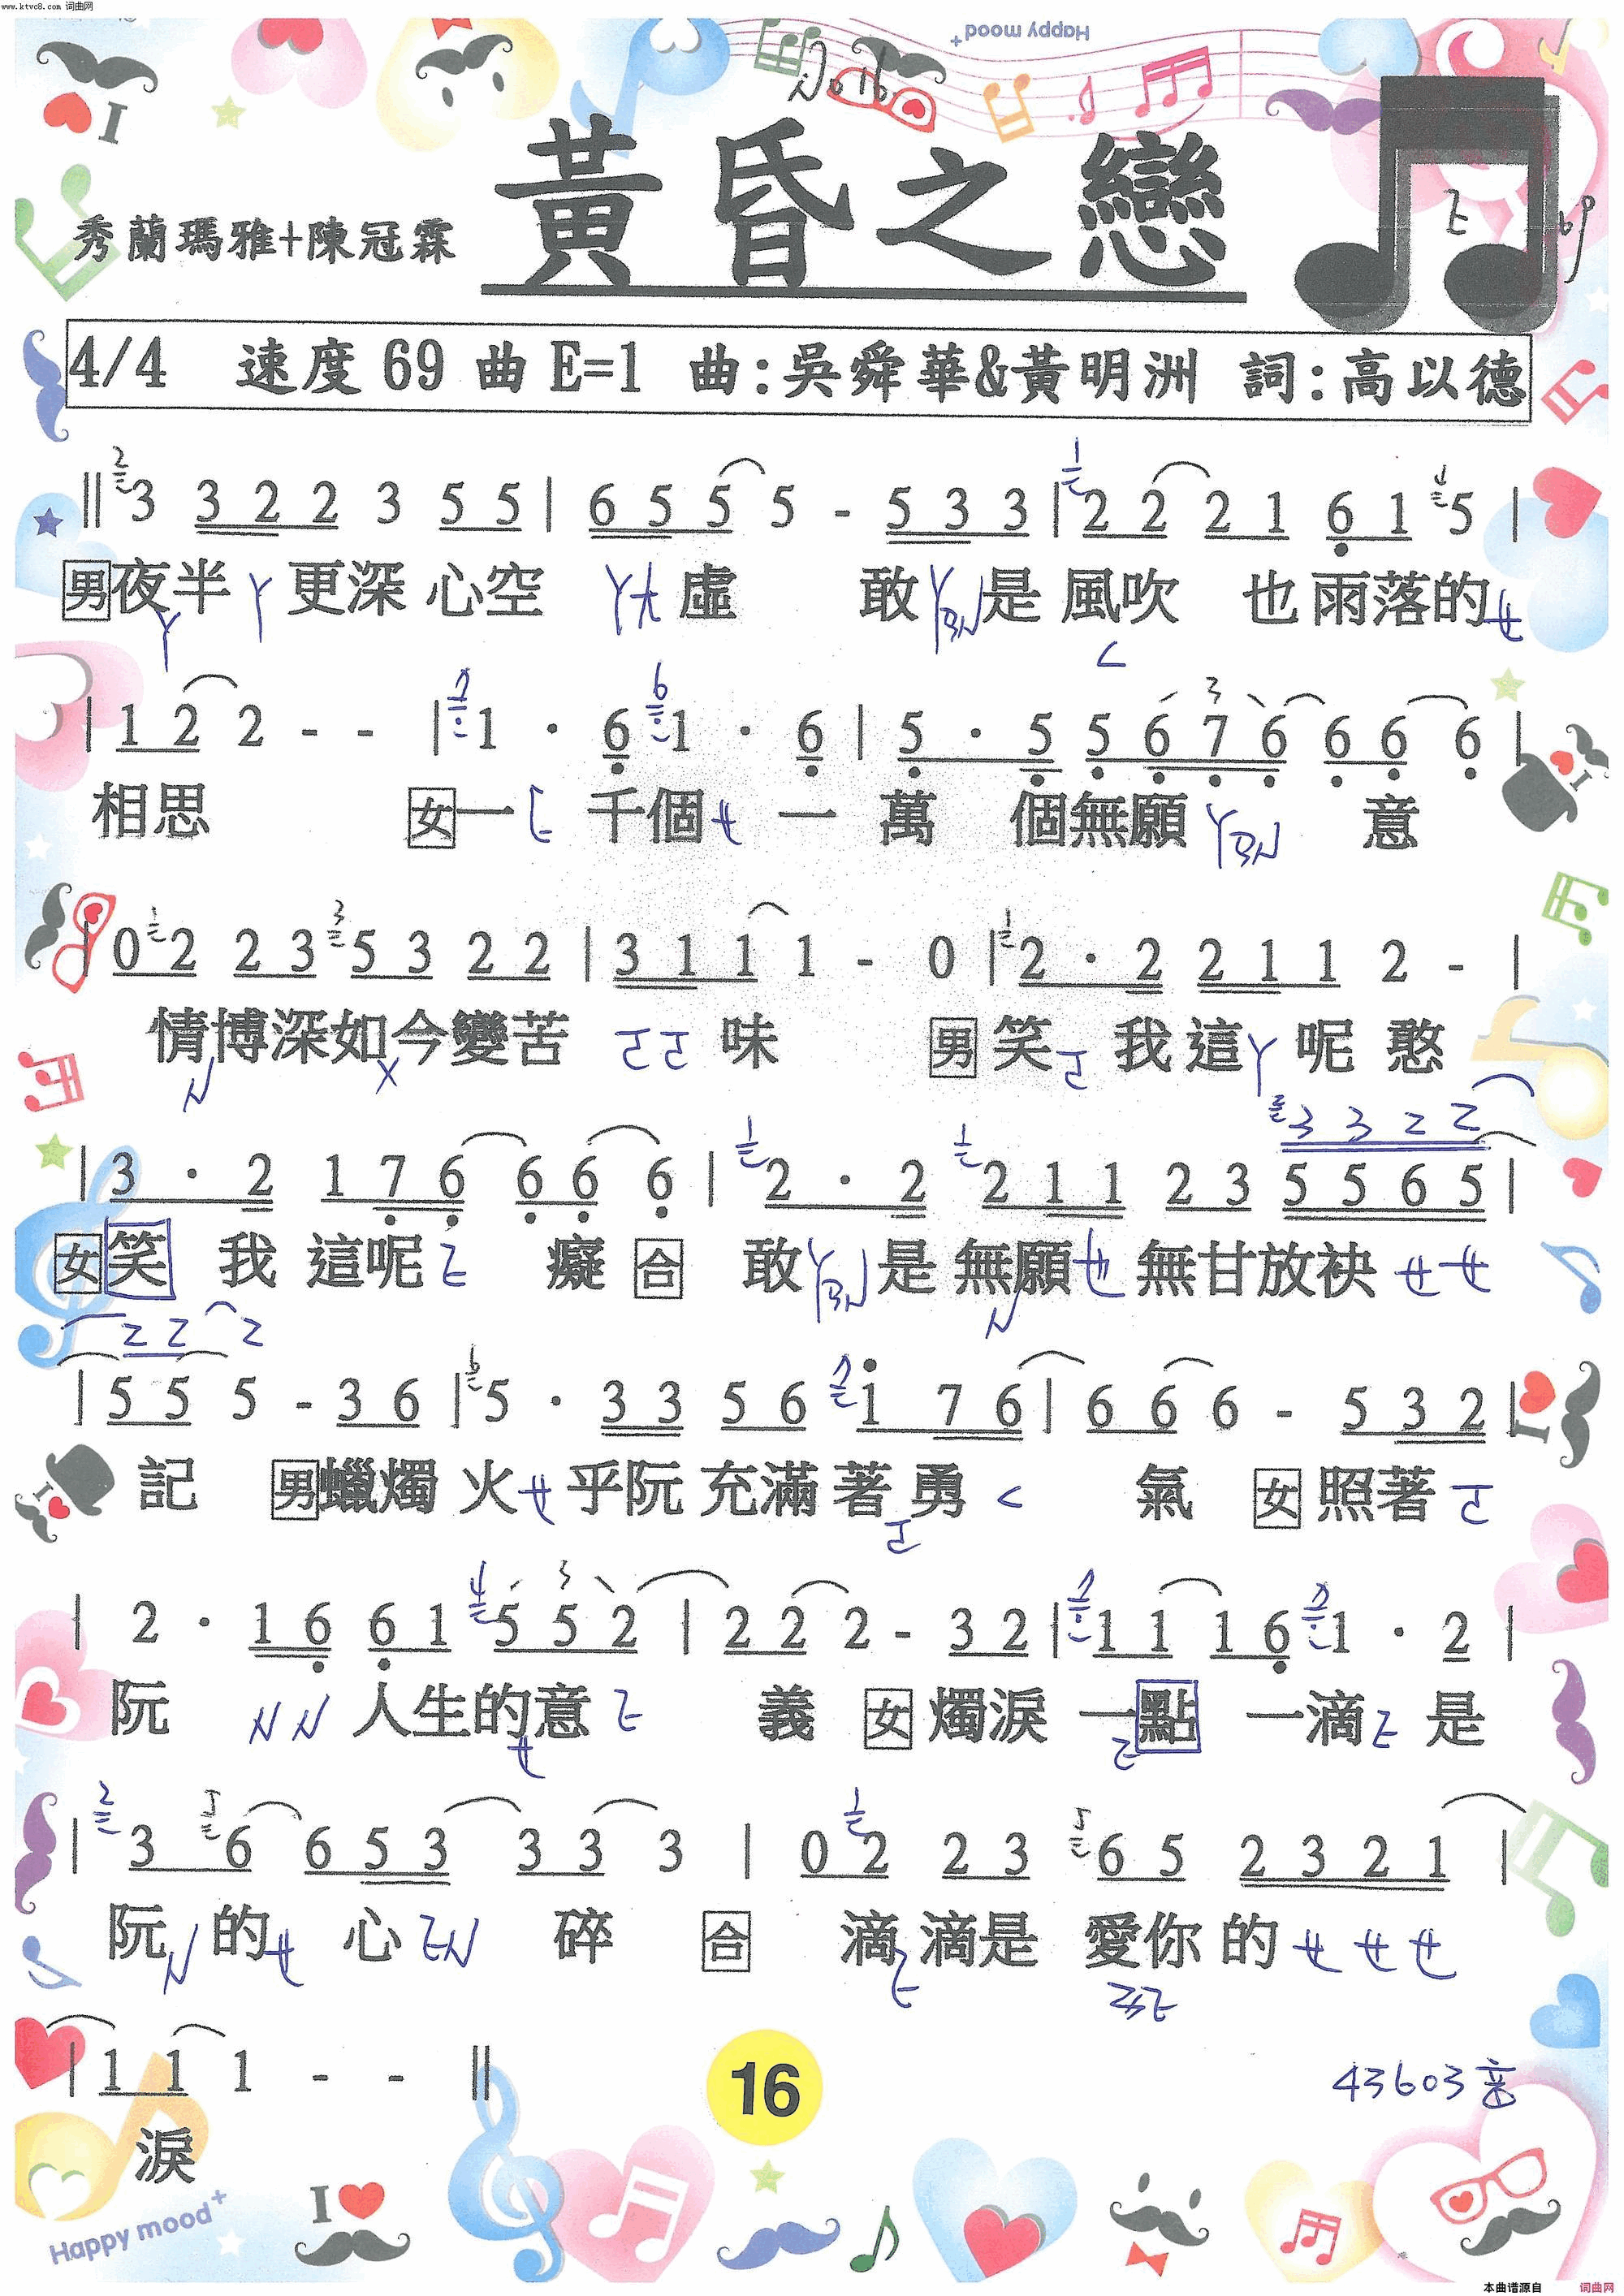 www.ktvc8.com 词曲网
Happy mood+
No16
黃昏之戀
秀蘭瑪雅+陳冠霖
4/4 速度 69 曲 E=1 曲:吳舜華&黃明洲 詞:高以德
‖ 3 3 2 2 3 5 5 | 6 5 5 5 - 5 3 3 | 2 2 2 1 6 1 5 |
男夜半 更深 心空 虛 敢 是 風吹 也雨落的
| 1 2 2 - - | 1 · 6 1 · 6 | 5 · 5 5 6 7 6 6 6 6 |
相思 女一 千個 一 萬 個無願 意
| 0 2 2 3 5 3 2 2 | 3 1 1 1 - 0 | 2 · 2 2 1 1 2 - |
情博深如今變苦 味 男 笑 我這 呢 憨
3 3 2 2
| 3 · 2 1 7 6 6 6 6 | 2 · 2 2 1 1 2 3 5 5 6 5 |
女笑 我 這呢 癡 合 敢 是 無願 無甘放袂
2 2 2
| 5 5 5 - 3 6 | 5 · 3 3 5 6 1 7 6 | 6 6 6 - 5 3 2 |
記 男蠟燭 火 乎阮 充滿 著 勇 氣 女 照著
| 2 · 1 6 6 1 5 5 2 | 2 2 2 - 3 2 | 1 1 1 6 1 · 2 |
阮 人生的意 義 女 燭淚 一點 一滴 是
| 3 6 6 5 3 3 3 3 | 0 2 2 3 6 5 2 3 2 1 |
阮 的 心 碎 合 滴 滴是 愛你 的
| 1 1 1 - - ‖
淚
16
43603
I
Happy mood+
本曲谱源自 词曲网